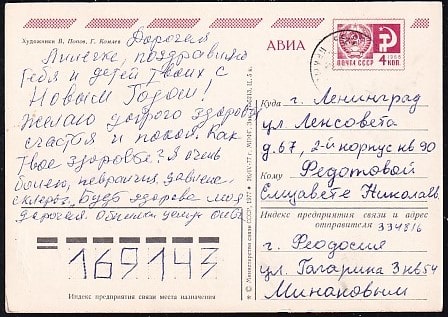 Художники В. Попов, Г. Комлев
Дорогая
поздравляю
тебя и детей твоих с
Новым Годом!
Желаю доброго здоровья
счастья и покоя. Как
твое здоровье? Я очень
болею,
Будь здорова моя
дорогая.
АВИА
ПОЧТА СССР
1966
4 КОП.
Куда г. Ленинград
ул Ленсовета
д. 67, 2-й корпус кв 90
Кому Федотовой
Елизавете Николаев
Индекс предприятия связи и адрес
отправителя 334816
г. Феодосия
ул. Гагарина 3 кв 54
Минаковым
169143
Индекс предприятия связи места назначения
© Министерство связи СССР. 1977